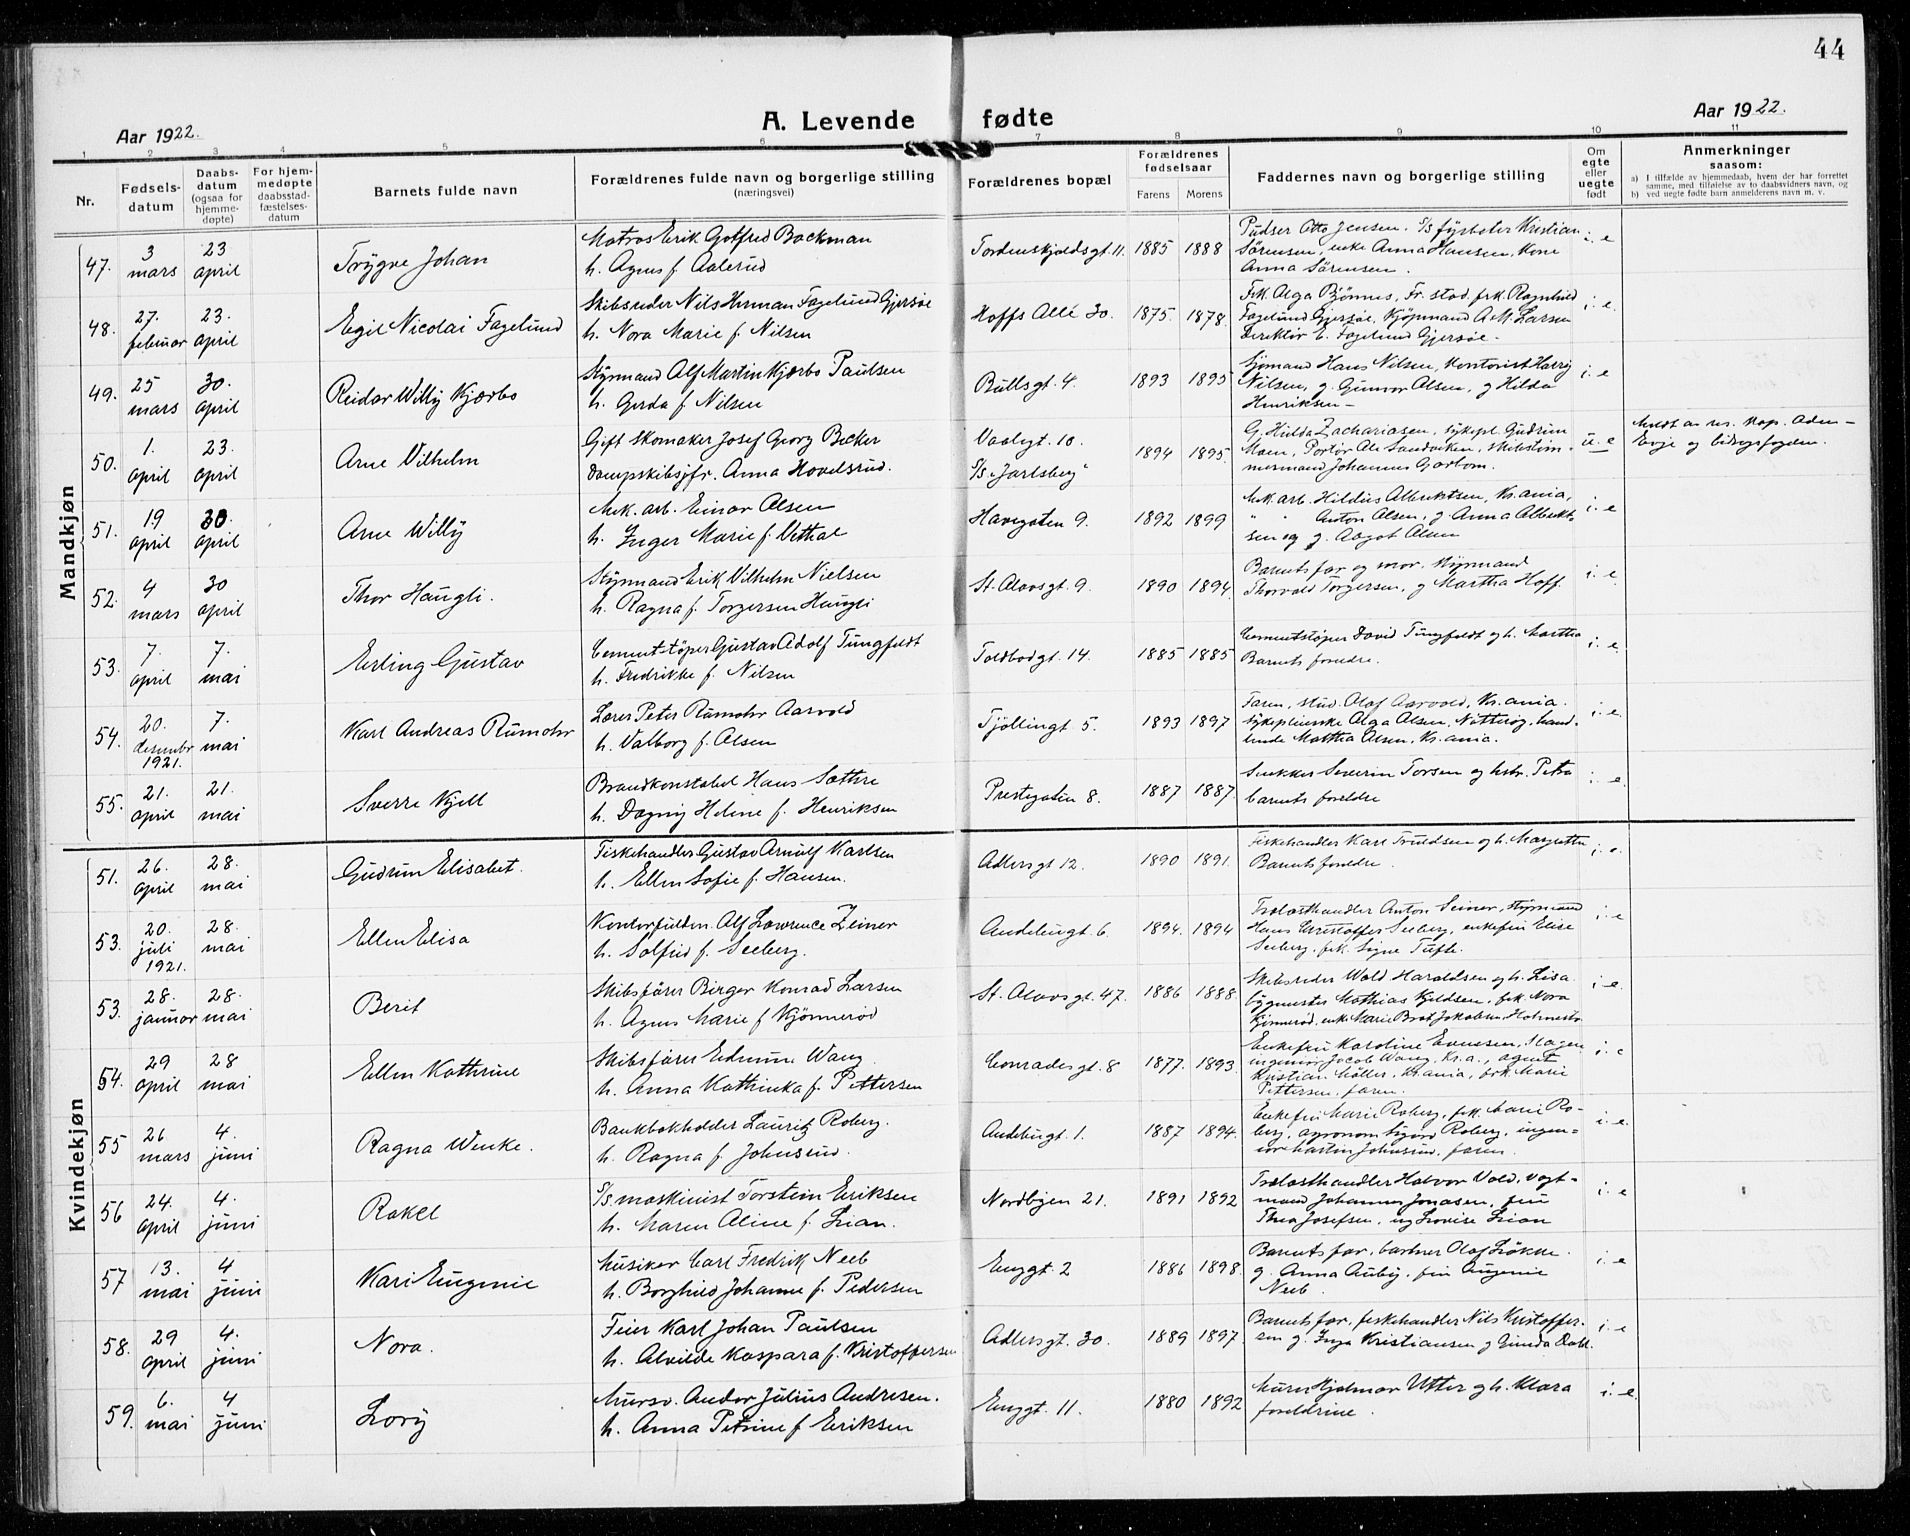 44
A. Levende fødte
Aar 1922.
Aar 1922.
1 2 3 4 5 6 7 8 9 10 11
Nr.
Fødselsdatum
Daabsdatum (ogsaa for hjemmedøpte)
For hjemmedøpte daabsstadfæstelsesdatum
Barnets fulde navn
Forældrenes fulde navn og borgerlige stilling
(næringsvei)
Forældrenes bopæl
Forældrenes fødselsaar
Farens Morens
Faddernes navn og borgerlige stilling
Om egte eller uegte født
Anmerkninger
saasom:
a) I tilfælde av hjemmedaab, hvem der har forrettet samme, med tilføielse av to daabsvidners navn, og
b) ved uegte fødte barn anmelderens navn m. v.
Mandkjøn
47. 3 mars 23 april Trygve Johan
Matros Erik Gotfred Backman
h. Agnes f. Aalerud
Tordenskjoldsgt. 11. 1885 1888
Pudser Otto Jensen. S/s fyrbøter Kristian
Sørensen, enke Anna Hansen, Kone
Anna Sørensen.
i. e
48. 27. februar 23. april Egil Nicolai Fagelund
Skibsreder Nils Herman Fagelund Gjersøe
h. Nora Marie f. Nilsen
Hoffs Allé 30. 1875. 1878.
Frk. Alga Bjønnes, Fr. stud. frk. Ragnhild
Fagelund Gjersøe, Kjøpmand A. M. Larsen
Direktør E. Fagelund Gjersøe.
i. e.
49. 25 mars 30. april Reidar Willy Kjærbo
Styrmand Alf Martin Kjærbo Paulsen
h. Gerda f. Nilsen
Bullsgt. 4. 1893 1895
Sjømand Hans Nilsen, Kontorist Harry
Nilsen, g. Gunvor Olsen, g Hilda
Henriksen
i. e
50. 1. april 23. april Arne Vilhelm
Gift skomaker Josef Georg Becker
Dampskibsjfr. Anna Hovelsrud.
Vaalegt. 10.
S/s "Jarlsberg" 1894 1895.
G. Hilda Zachariasen, sykepl. Gudrun
Moen, Portør Ole Sandviken, skibstøm-
mermand Johannes
u. e
51. 19 april 30. april Arne Willy
Mek. arb. Einar Olsen
h. Inger Marie f. Vethal
Havegaten 9. 1892 1899
Mek. arb. Hildus Albrektsen, Kr.ania,
" " Anton Olsen, g. Anna Albrekt-
sen og g. Aagot Olsen
i. e
52. 4 mars 30 april Thor Haugli.
Styrmand Erik Vilhelm Nielsen
h. Ragna f. Torgersen Haugli
St. Olavsgt. 9. 1890 1894.
Barnets far og mor. Styrmand
Thorvald Torgersen, g Martha Hoff.
i. e.
53. 7. april 7. mai Erling Gustav
Cementstøper Gustav Adolf Tungfeldt
h. Fredrikke f. Nilsen
Toldbodgt. 14. 1885 1885
Cementstøper David Tungfeldt og h. Martha
Barnets foreldre.
i. e.
54. 20. desember 1921. 7. mai Karl Andreas Rumohr
Lærer Peter Rumohr Aarvold
h. Valborg f. Olsen
Tjøllingt 5. 1893 1897
Faren, stud. Olaf Aarvold, Kr.ania.
sykepleierske Olga Olsen, Nøtterøy, hand-
lende Martha Olsen, Kr.ania.
i. e.
55. 21. april 21. mai Sverre Kjell
Brandkonstabel Hans Sæthre
h. Dagny Helene f. Henriksen
Prestegaten 8. 1887 1887.
Snekker Severin Torsen og hstr. Petra
barnets foreldre
i. e.
Kvindekjøn
51. 26. april 28. mai Gudrun Elisabet.
Fiskehandler Gustav Arnulf Karlsen
h. Ellen Sofie f. Hansen.
Adlersgt 12. 1890 1891.
Fiskehandler Karl Truldsen og h. Margrethe
Barnets foreldre.
i. e.
53. 20. juli 1921. 28. mai Ellen Elisa
Kontorfuldm. Alf Lawrence Zeiner
h. Solfrid f. Seeberg.
Andebugt. 6. 1894. 1894
Trælasthandler Anton Seiner, styrmand
Hans Christoffer Seeberg, enkefru Elise
Seeberg, frk. Signe Tufte.
i. e
53. 28. januar 28. mai Berit
Skibsfører Birger Konrad Larsen
h. Agnes Marie f Kjønnerød
St. Olavsgt. 47. 1886 1888.
Skibsreder Wold Haraldsen og h. Lisa.
bygmester Mathias Kjeldsen, frk. Nora
Kjønnerød, enke Marie Brat Jakobsen Holmestr.
i. e.
54. 29 april 28 mai Ellen Kathrine
Skibsfører Edmune Wang.
h. Anna Kathinka f. Pettersen
Conradesgt. 8 1877. 1893.
Enkefru Karoline Evensen, Slagen
ingeniør Jacob Wang, Kr.a., agent
Kristian Møller, Kr.ania, frk. Marie
Pettersen, faren.
i. e
55 26 mars 4. juni Ragna Wenke.
Bankbokholder Lauritz Roberg.
h. Ragna f. Johnsrud.
Andebugt. 1. 1887 1894.
Enkefru Marie Roberg, frk. Marie Ro-
berg, agronom Sigurd Roberg, ingeni-
ør Martin Johnsrud. faren.
i. e.
56 24. april 4. juni Rakel
S/s maskinist Torstein Eriksen
h. Maren Aline f. Lian.
Nordbyen 21. 1891 1892
Trælasthandler Halvor Vold, vogt-
mand Johannes Jonasen, fru
Thea Josefsen, og Lovise Lian
i. e
57 13. mai 4 juni Kari Eugenie
Musiker Carl Fredrik Neeb
h. Borghild Johanne f. Pedersen
Enggt. 2 1886 1898.
Barnets far, bartner Olaf Løkke.
g. Anna Auby, fru Augenie
Neeb.
i. e
58. 29 april 4. juni Nora.
Feier Karl Johan Paulsen
h. Alvilde Kaspara f. Kristoffersen
Adlersgt. 30. 1889 1897.
Barnets far, fiskehandler Nils Kristoffer-
sen g. Inga Kristiansen g Gunda Dahl.
i. e
59. 6. mai 4 juni Lory
Mursv. Andor Julius Andresen.
h. Anna Petrine f Eriksen
Enggt. 11. 1880 1892
Murer Hjalmar Utter og h. Klara
foreldrene.
i. e.